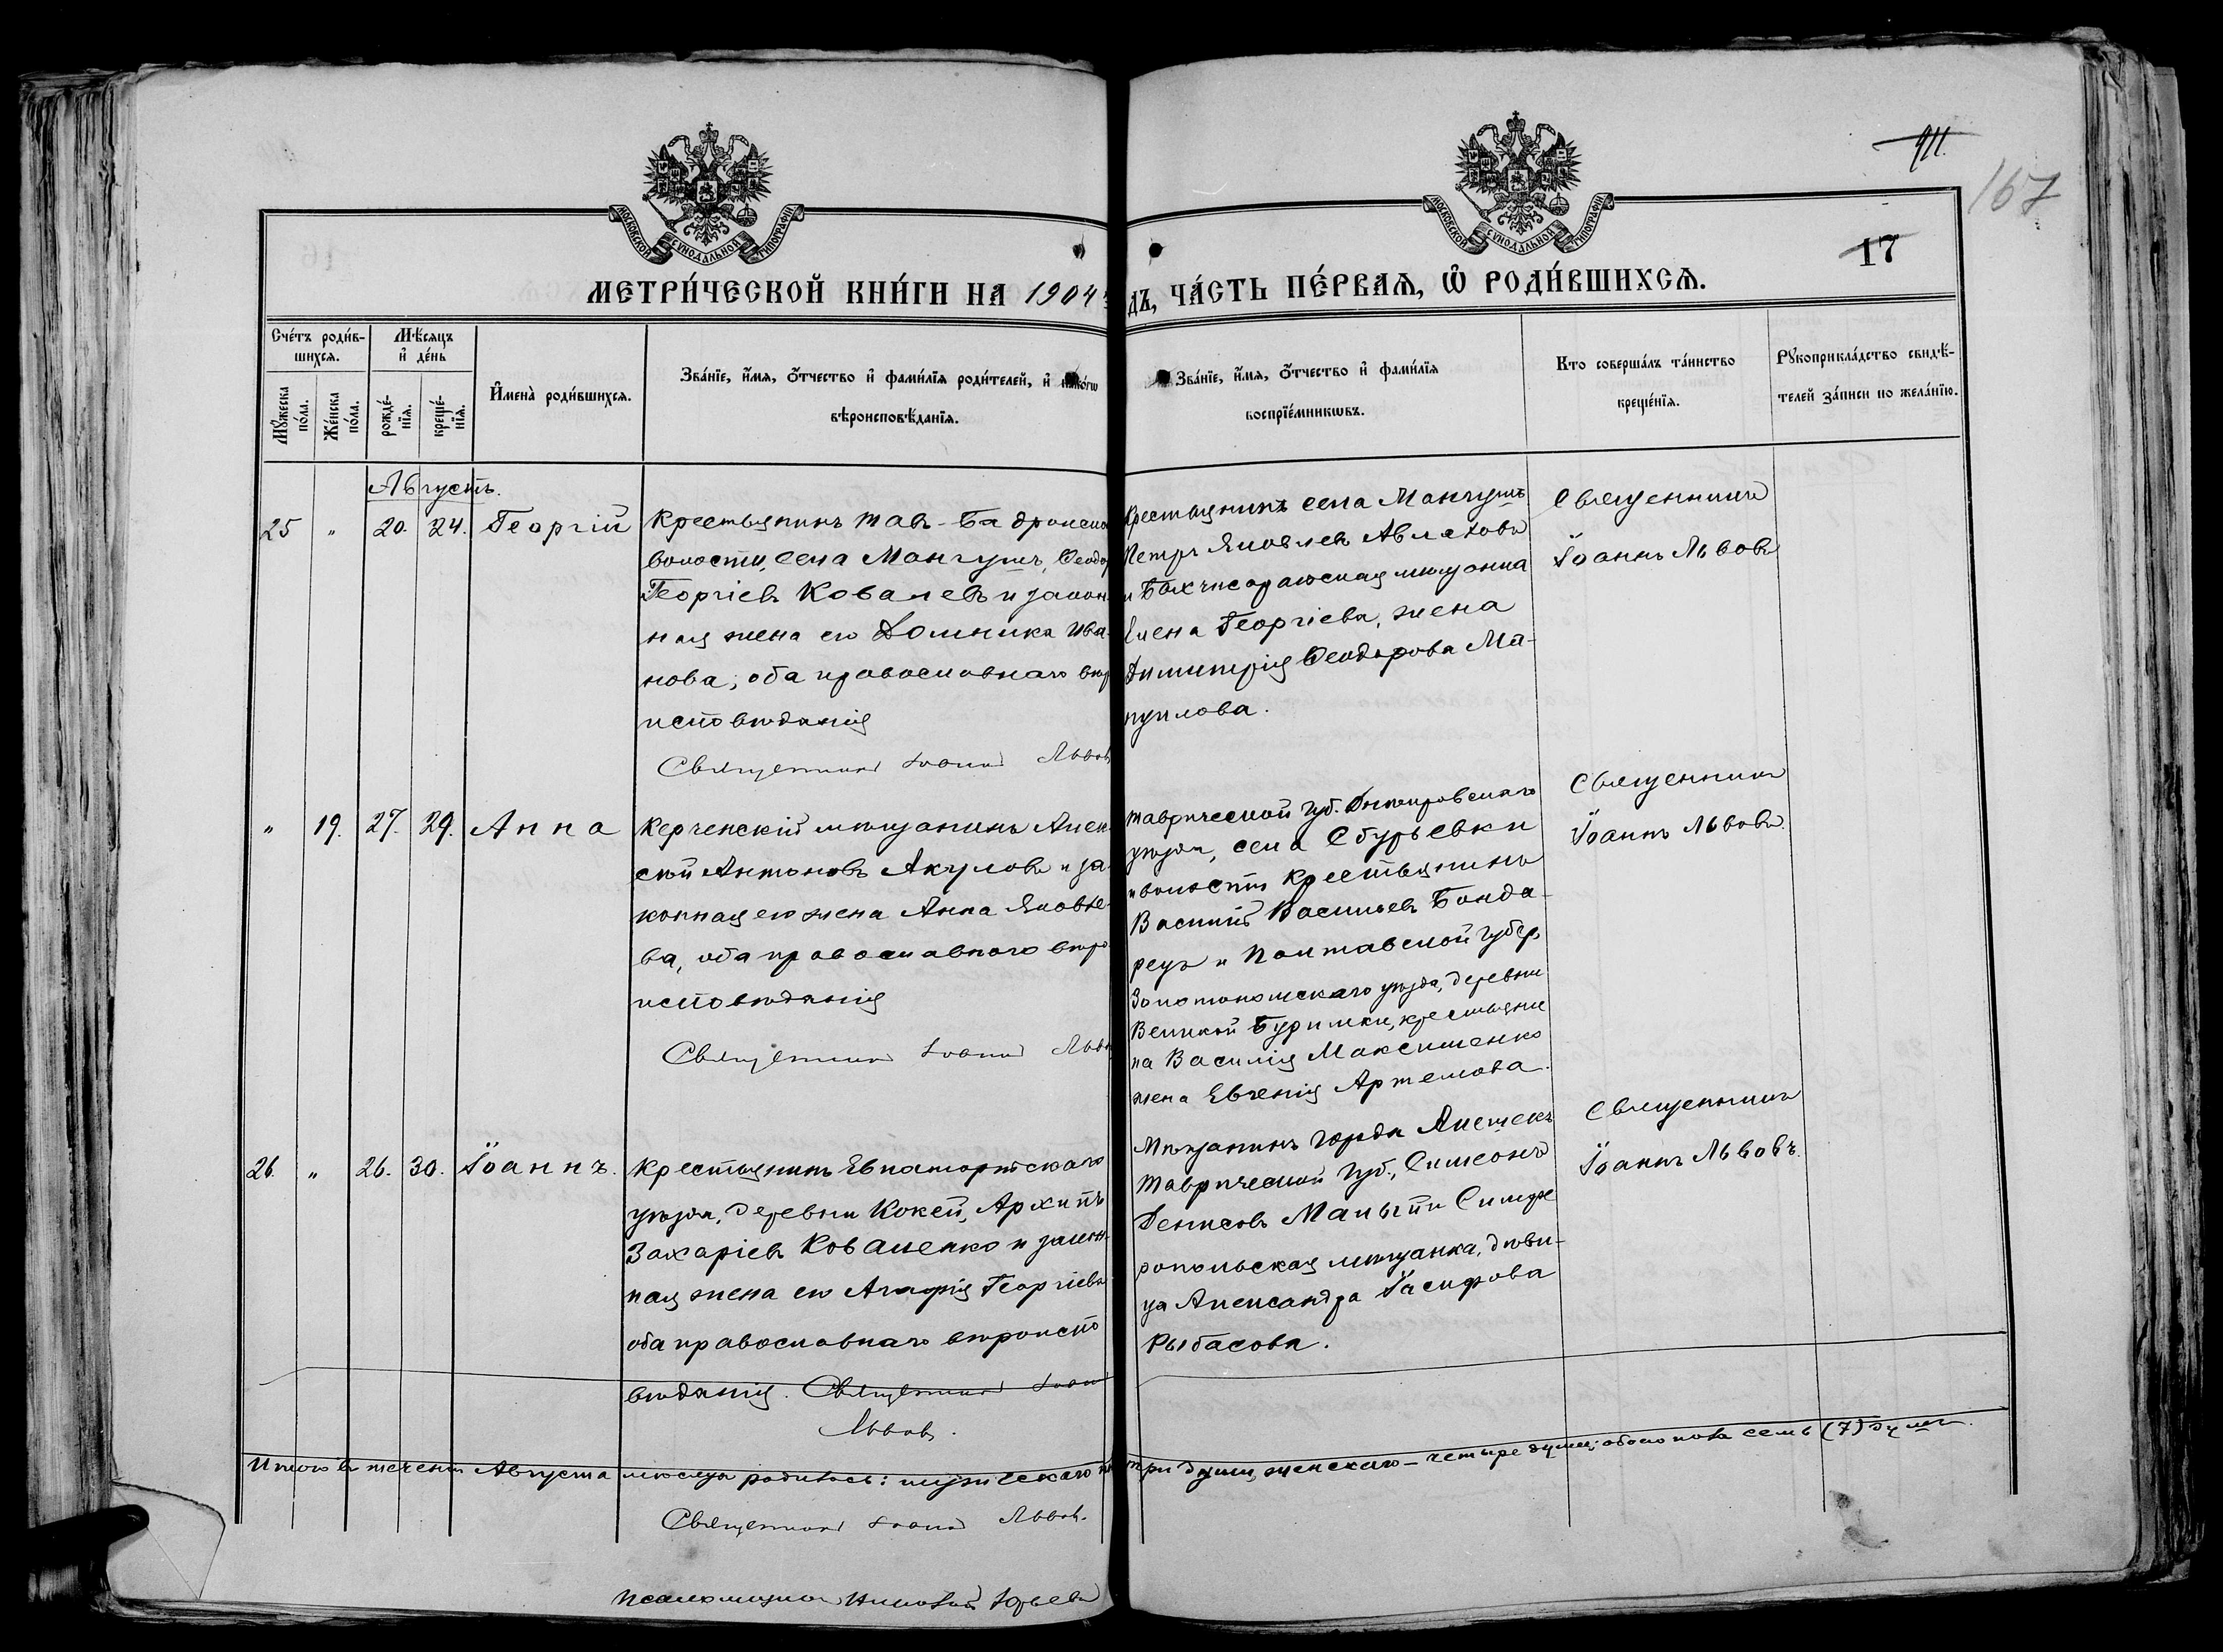 911
167
МОСКОВСКОЙ СѴНОДАЛЬНОЙ ТИПОГРАФІИ
МОСКОВСКОЙ СѴНОДАЛЬНОЙ ТИПОГРАФІИ
17
МЕТРИ́ЧЕСКОЙ КНИ́ГИ НА 1904
ДЪ, ЧА́СТЬ ПЕ́РВАѦ, Ѡ҆ РОДИ́ВШИХСѦ.
Сче́тъ роди́в-
шихсѧ.
Мꙋжеска
по́ла.
Же́нска
по́ла.
Мѣ́сѧцъ
и҆ де́нь
рожде́-
нїѧ.
креще́-
нїѧ.
И҆мена̀ роди́вшихсѧ.
Зва́нїе, и҆́мѧ, ѻ҆́тчество и҆ фами́лїѧ роди́телей, и҆ како́гѡ
вѣроисповѣ́данїѧ.
Зва́нїе, и҆́мѧ, ѻ҆́тчество и҆ фами́лїѧ
воспрїе́мникѡвъ.
Кто соверша́лъ та́инство
креще́нїѧ.
Рꙋкоприкла́дство свидѣ́-
телей за́писи по жела́нїю.
Августъ.
25 " 20. 24. Георгій
Крестьянинъ Тав-Бадрокской
волости, села Мангушъ, Ѳеодор
Георгіевъ Ковалевъ и закон-
ная жена его Домника Ива-
нова; оба православнаго вѣро
исповѣданія
Священникъ Іоаннъ Львовъ
Крестьянинъ села Мангушъ
Петръ Яковлевъ Авлаховъ
и Бахчисарайская мѣщанка
Елена Георгіева, жена
Димитрія Ѳеодорова Ма-
пуилова.
Священникъ
Іоаннъ Львовъ
" 19. 27. 29. Анна
Керченскій мѣщанинъ Алек-
сѣй Антоновъ Акуловъ и за-
конная его жена Анна Яковле-
ва, оба православнаго вѣро
исповѣданія
Священникъ Іоаннъ Львовъ
Таврической губ. Днѣпровскаго
уѣзда, села Збурьевки
и волости крестьянинъ
Василій Васильевъ Бонда-
рецъ и Полтавской губер
Золотоношскаго уѣзда, деревни
Великой Буримки, крестьяни
на Василія Максименко
жена Евгенія Артемова.
Священникъ
Іоаннъ Львовъ.
26. " 26. 30. Іоаннъ.
Крестьянинъ Евпаторійскаго
уѣзда, деревни Кокей, Архипъ
Захаріевъ Коваленко и закон-
ная жена его Агафія Георгіева
оба православнаго вѣроиспо
вѣданія. Священникъ Іоаннъ
Львовъ.
Мѣщанинъ города Алешекъ
Таврической губ., Симеонъ
Денисовъ Малый и Симфе
ропольская мѣщанка, дѣви-
ца Александра Іосифова
Рыбасова.
Священникъ
Іоаннъ Львовъ.
Итого въ теченіи Августа мѣсяца родилось: мужескаго по три души, женскаго – четыре души; обоего пола семь (7) душъ.
Священникъ Іоаннъ Львовъ.
Псаломщикъ Николай Юрьевъ